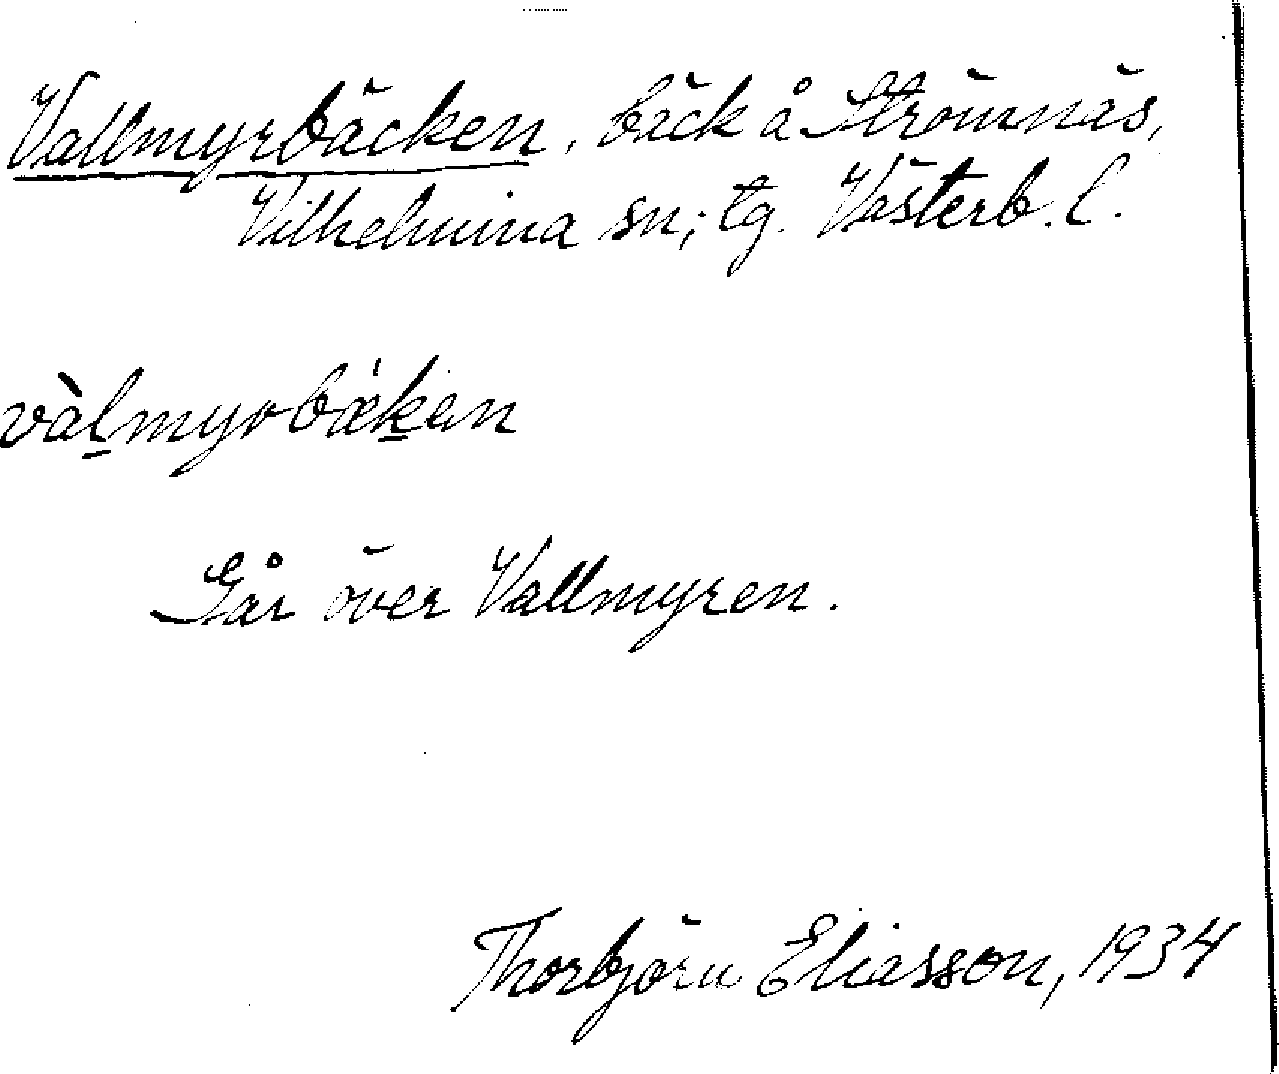 Vallmyrbäcken, bäck å Strömnäs,
Vilhelmina sn; tg. Västerb. l.
vàlmyrbækan
Går över Vallmyren.
Thorbjörn Eliasson, 1934